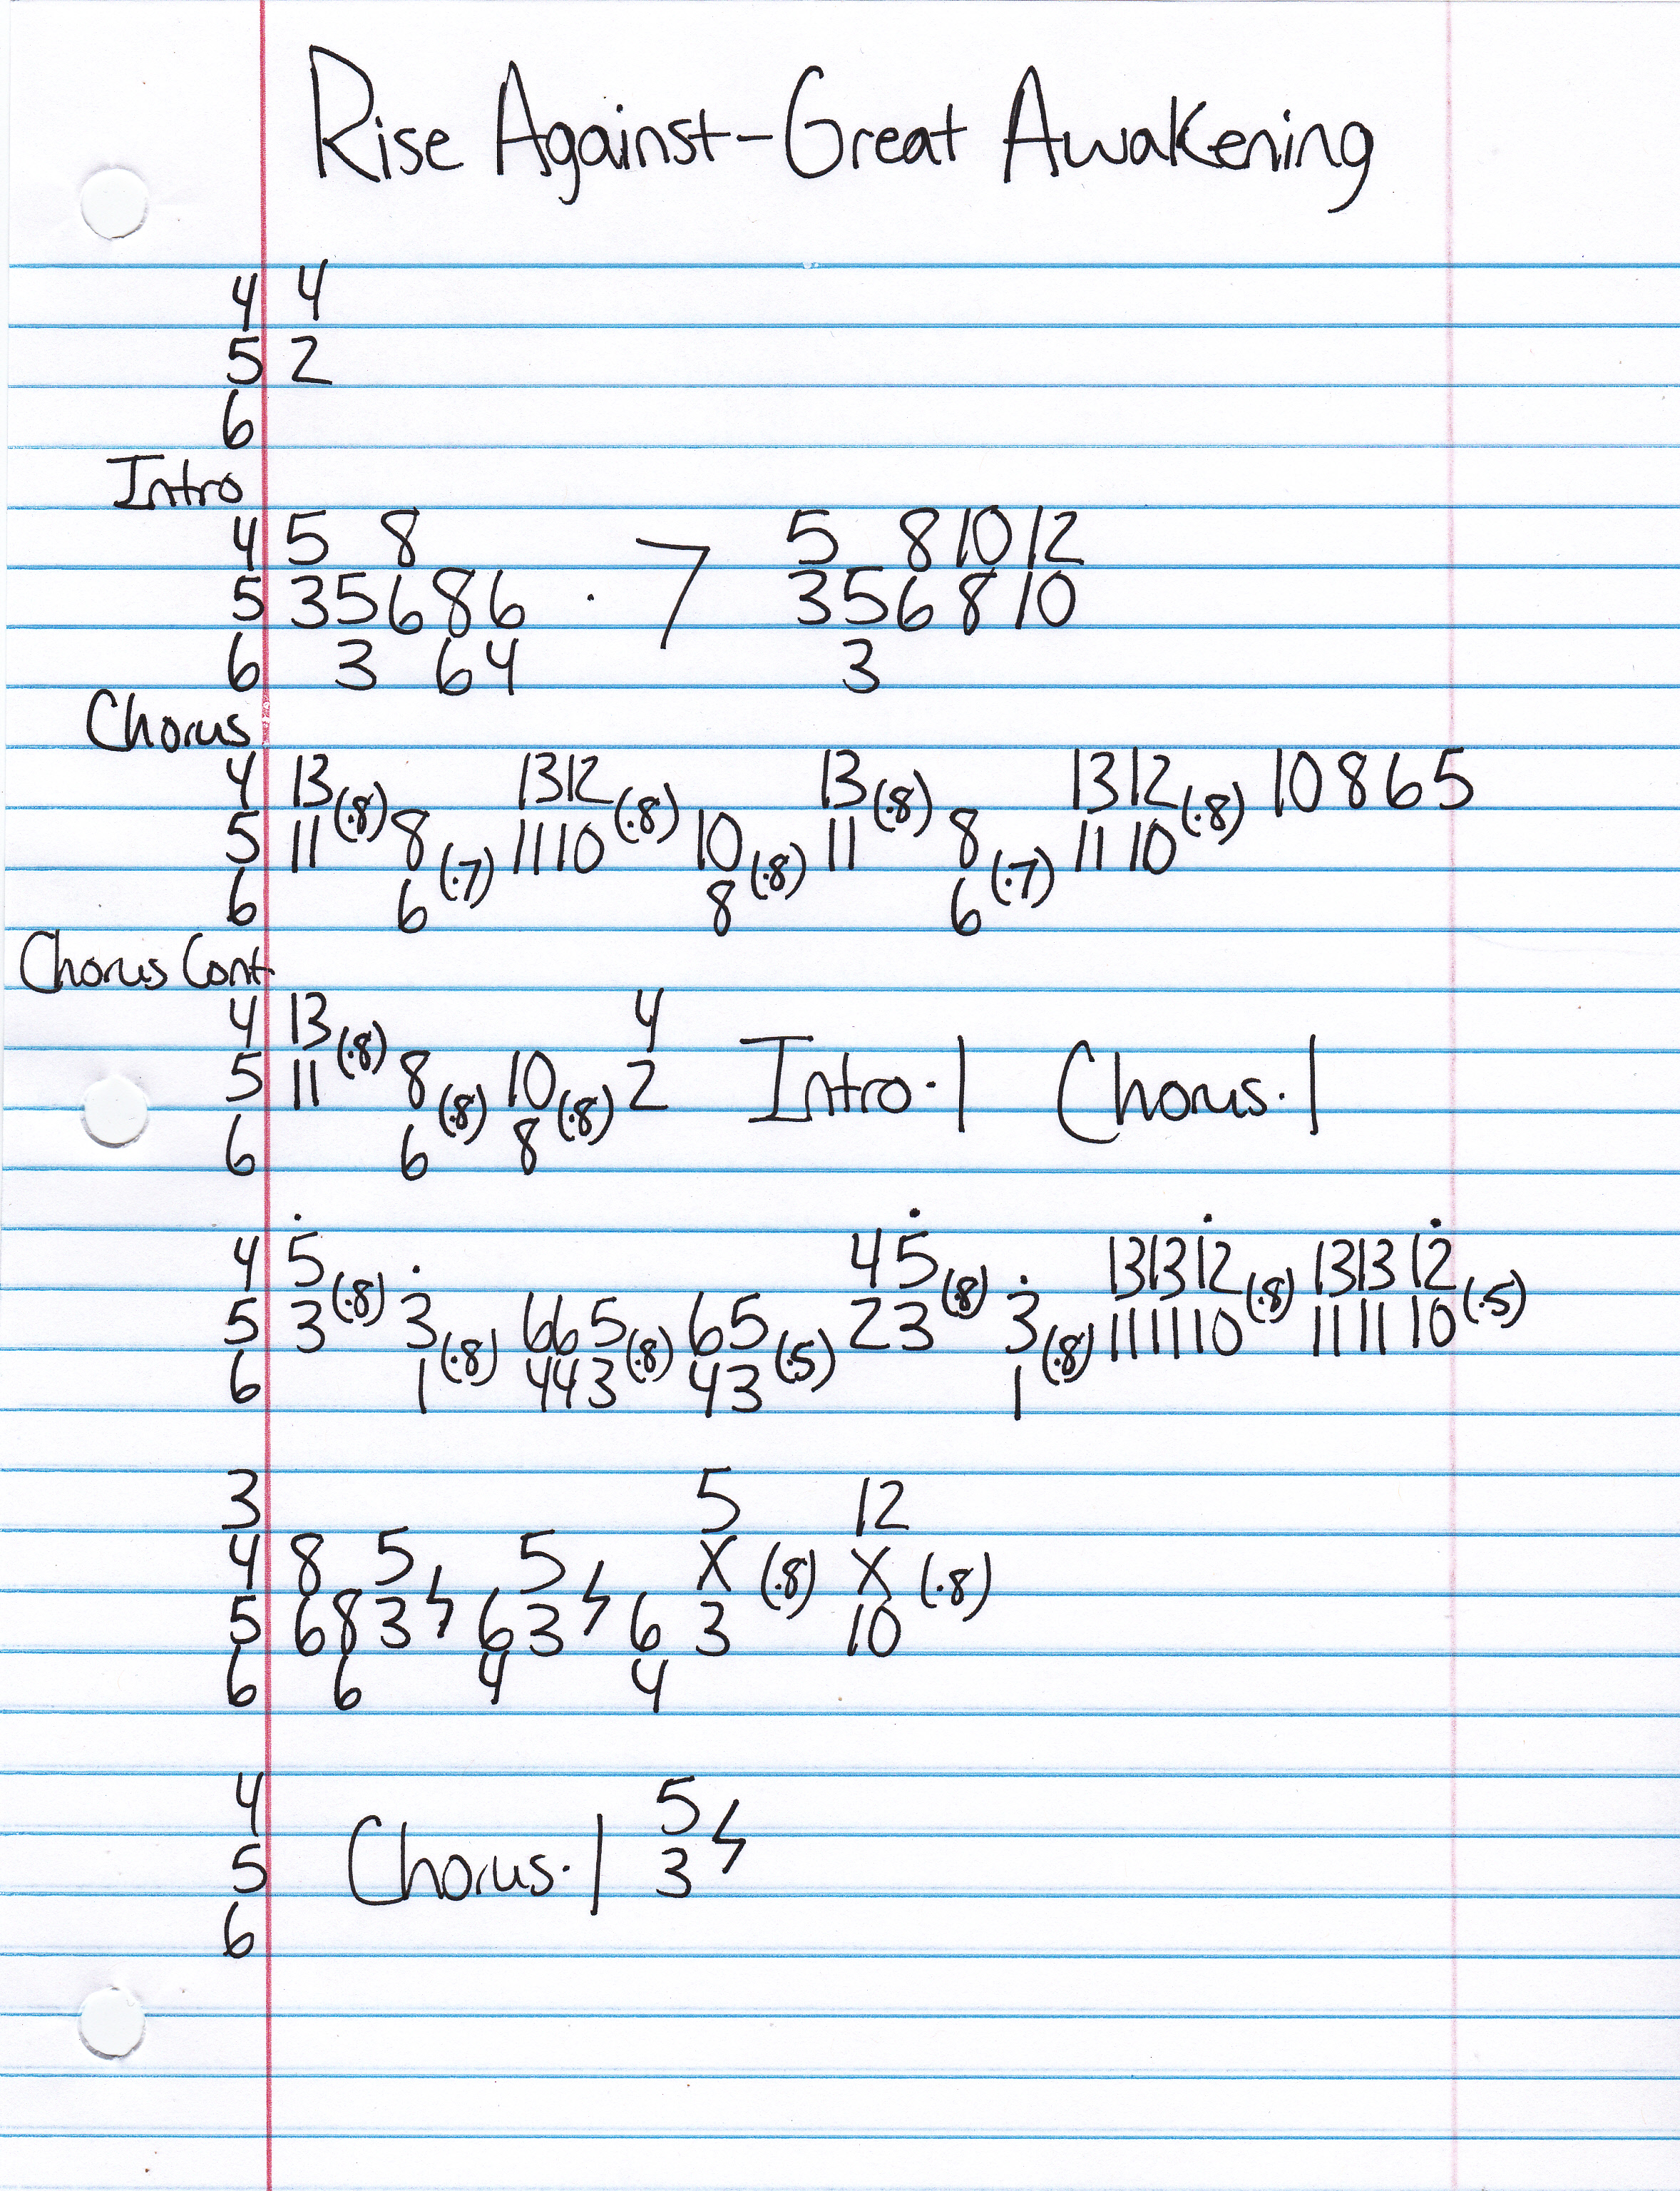 Rise Against-Great Awakening
4 4
5 2
6
Intro
4 5 8 5 8 10 12
5 3 5 6 8 6 .7 3 5 6 8 10
6 3 6 4 3
Chorus
4 13 (.8) 13 12 (.8) 13 (.8) 13 12 (.8) 10 8 6 5
5 11 8 (.7) 11 10 10 (.8) 11 8 (.7) 11 10
6 6 8 6
Chorus Cont
4 13 (.8) 4
5 11 8 (.8) 10 (.8) 2 Intro.1 Chorus.1
6 6 8
4 5 (.8) 4 5 (.8) 13 13 12 (.8) 13 13 12 (.5)
5 3 3 (.8) 6 6 5 (.8) 6 5 (.5) 2 3 3 (.8) 11 11 10 11 11 10
6 1 4 4 3 4 3 1
3 5 12
4 8 5 5 X (.8) X (.8)
5 6 8 3 6 3 6 3 10
6 6 4 4
4 5
5 Chorus.1 3
6